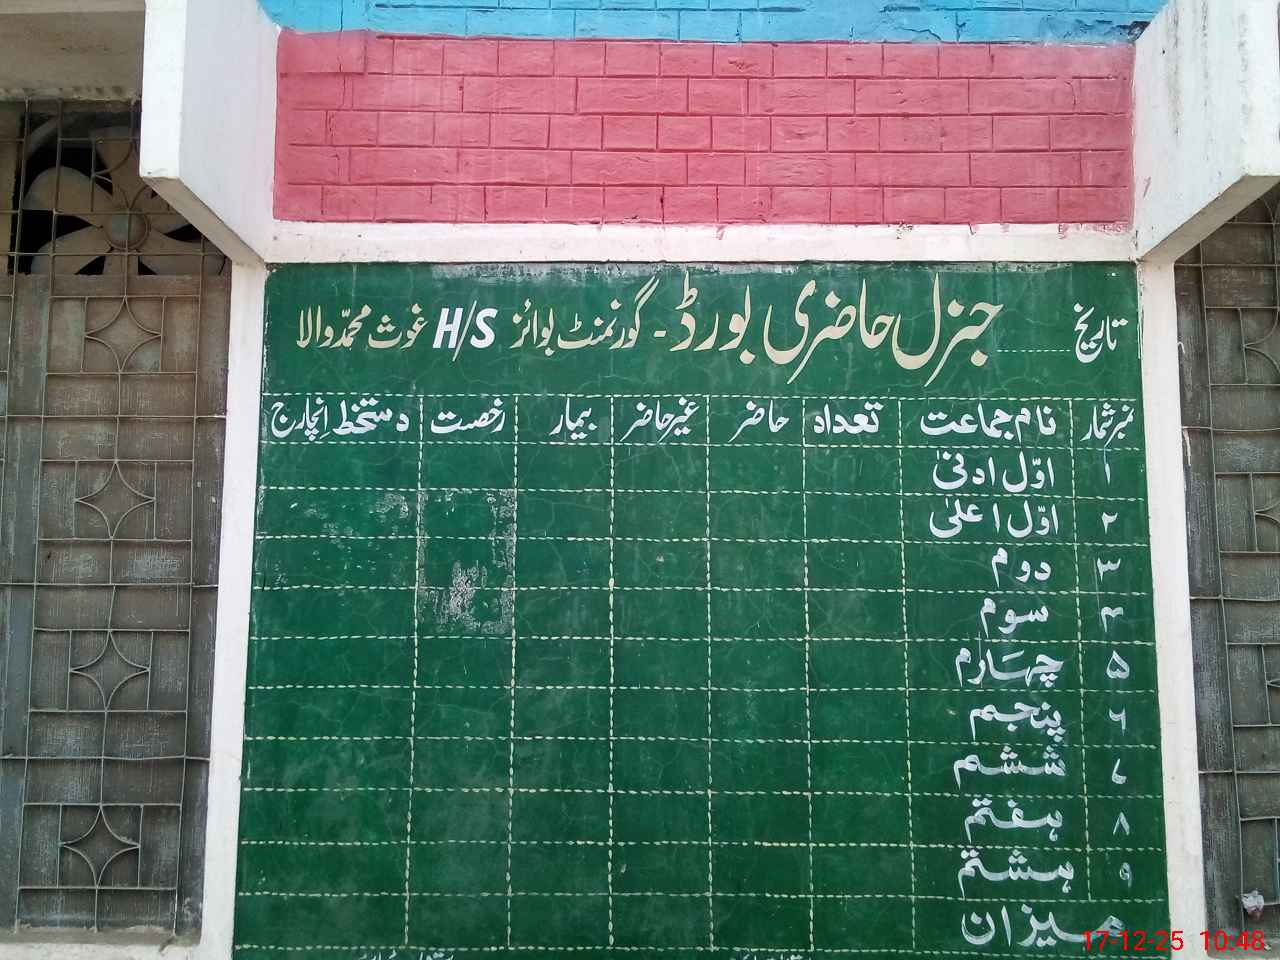 تاریخ ........ جنرل حاضری بورڈ - گورنمنٹ بوائز H/S غوث محمّد والا
نمبر شمار نام جماعت تعداد حاضر غیر حاضر بیمار رخصت دستخط اِنچارج
۱ اوّل ادنیٰ
۲ اوّل اعلیٰ
۳ دوم
۴ سوم
۵ چہارم
۶ پنجم
۷ ششم
۸ ہفتم
۹ ہشتم
میزان
17-12-25 10:48